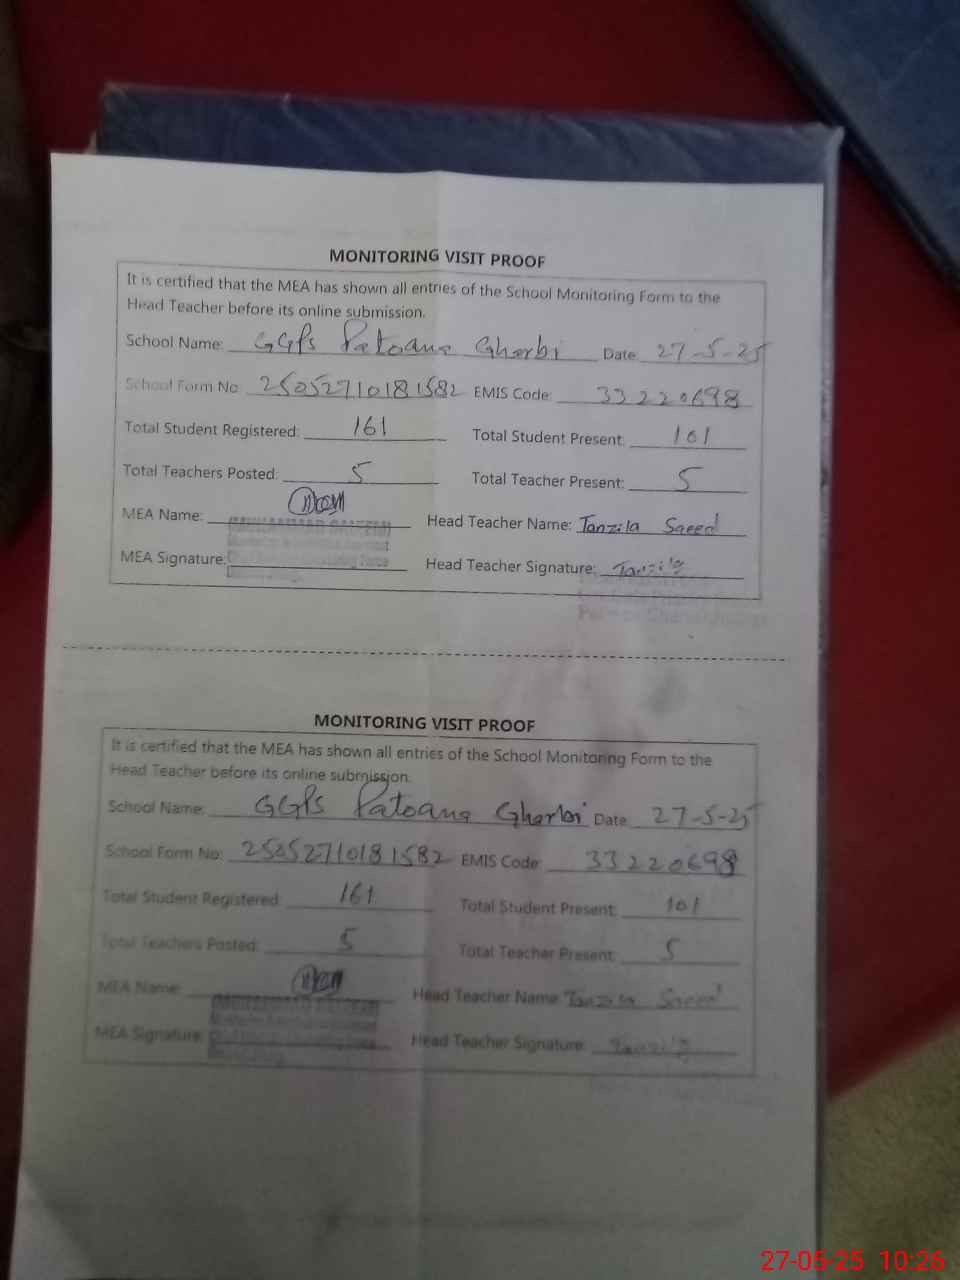 MONITORING VISIT PROOF
It is certified that the MEA has shown all entries of the School Monitoring Form to the
Head Teacher before its online submission.
School Name: GGPS Patoana Gharbi Date 27-5-25
School Form No: 25052710181582 EMIS Code: 33220698
Total Student Registered: 161 Total Student Present: 101
Total Teachers Posted: 5 Total Teacher Present: 5
MEA Name: Head Teacher Name: Tanzila Saeed
MEA Signature: Head Teacher Signature: Tanzila
MONITORING VISIT PROOF
It is certified that the MEA has shown all entries of the School Monitoring Form to the
Head Teacher before its online submission.
School Name: GGPS Patoana Gharbi Date 27-5-25
School Form No: 25052710181582 EMIS Code: 33220698
Total Student Registered: 161 Total Student Present: 101
Total Teachers Posted: 5 Total Teacher Present: 5
MEA Name: Head Teacher Name: Tanzila Saeed
MEA Signature: Head Teacher Signature: Tanzila
27-05-25 10:26